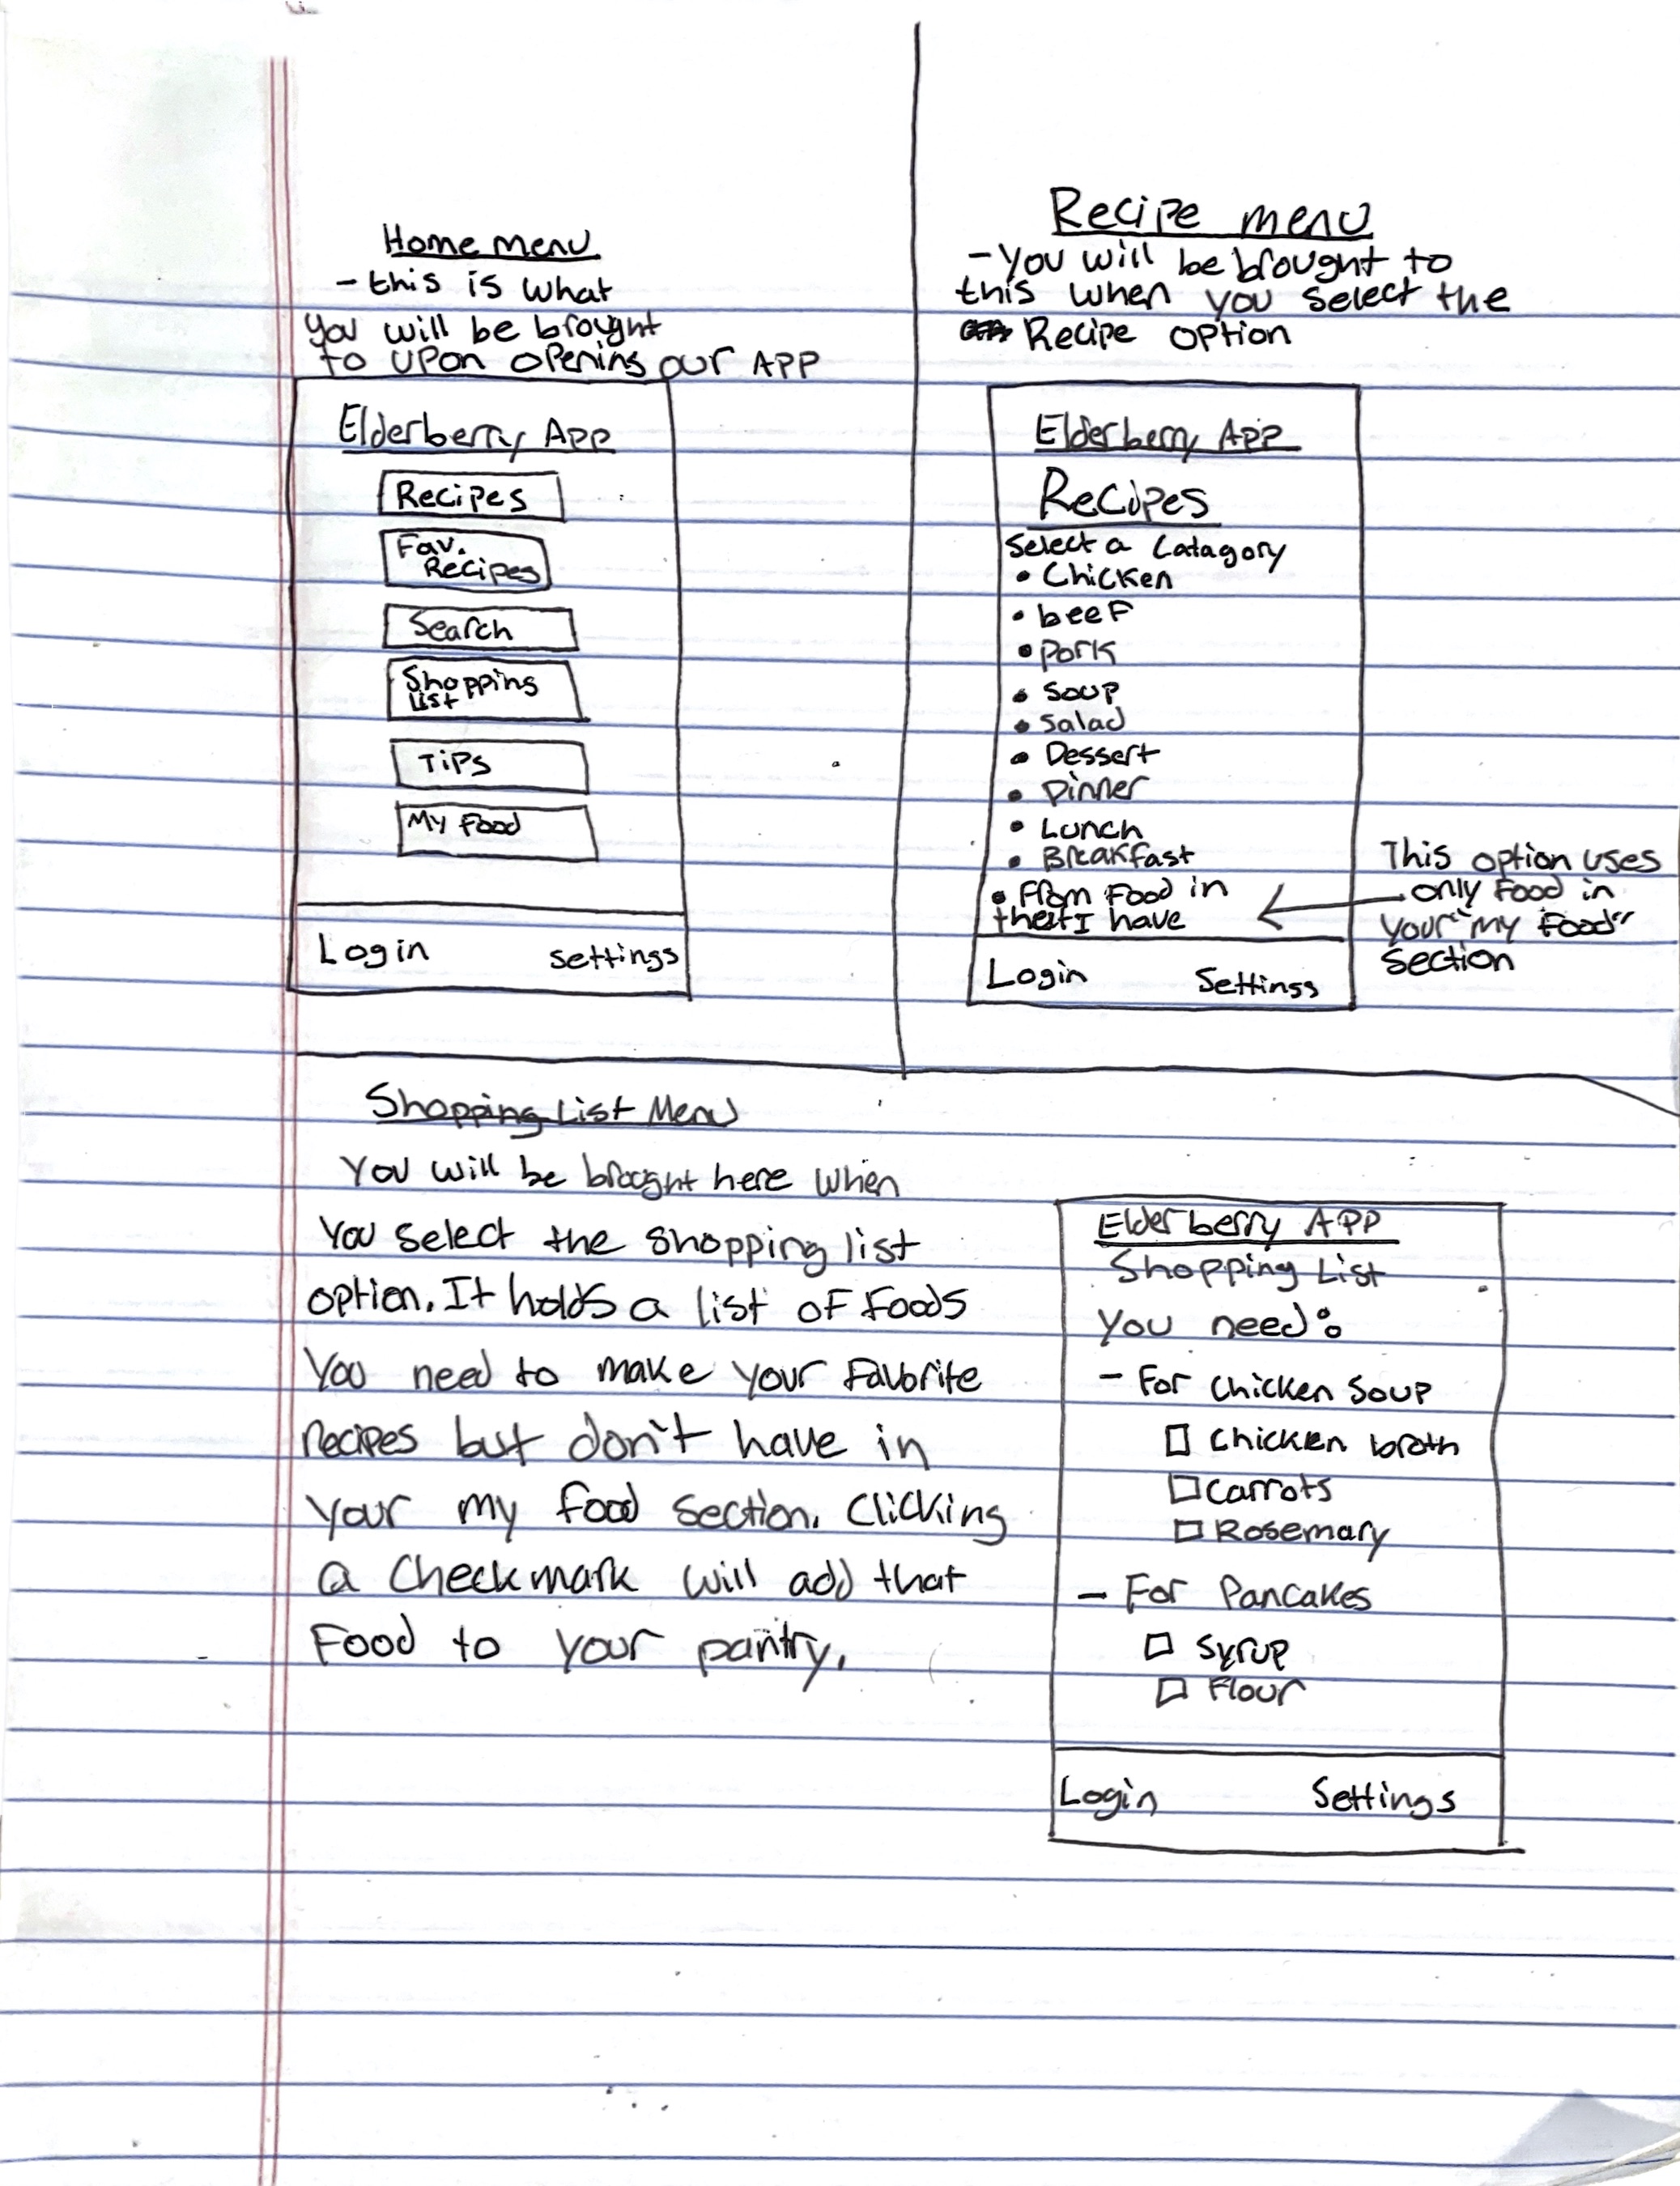 Home menu
- this is what
you will be brought
to upon opening our APP
Elderberry App
Recipes
Fav.
Recipes
Search
Shopping
List
Tips
My Food
Login settings
Recipe menu
- you will be brought to
this when you select the
Recipe option
Elderberry App
Recipes
Select a Catagory
• Chicken
• beef
• pork
• soup
• salad
• Dessert
• Dinner
• Lunch
• Breakfast
• From Food in
that I have
Login Settings
This option uses
only food in
your "my food"
section
Shopping List Menu
You will be brought here when
You select the shopping list
option. It holds a list of foods
You need to make your favorite
recipes but don't have in
your my food section. Clicking
a checkmark will add that
Food to your pantry.
Elderberry APP
Shopping List
You need:
- For Chicken Soup
☐ Chicken broth
☐ Carrots
☐ Rosemary
- For Pancakes
☐ Syrup
☐ Flour
Login Settings